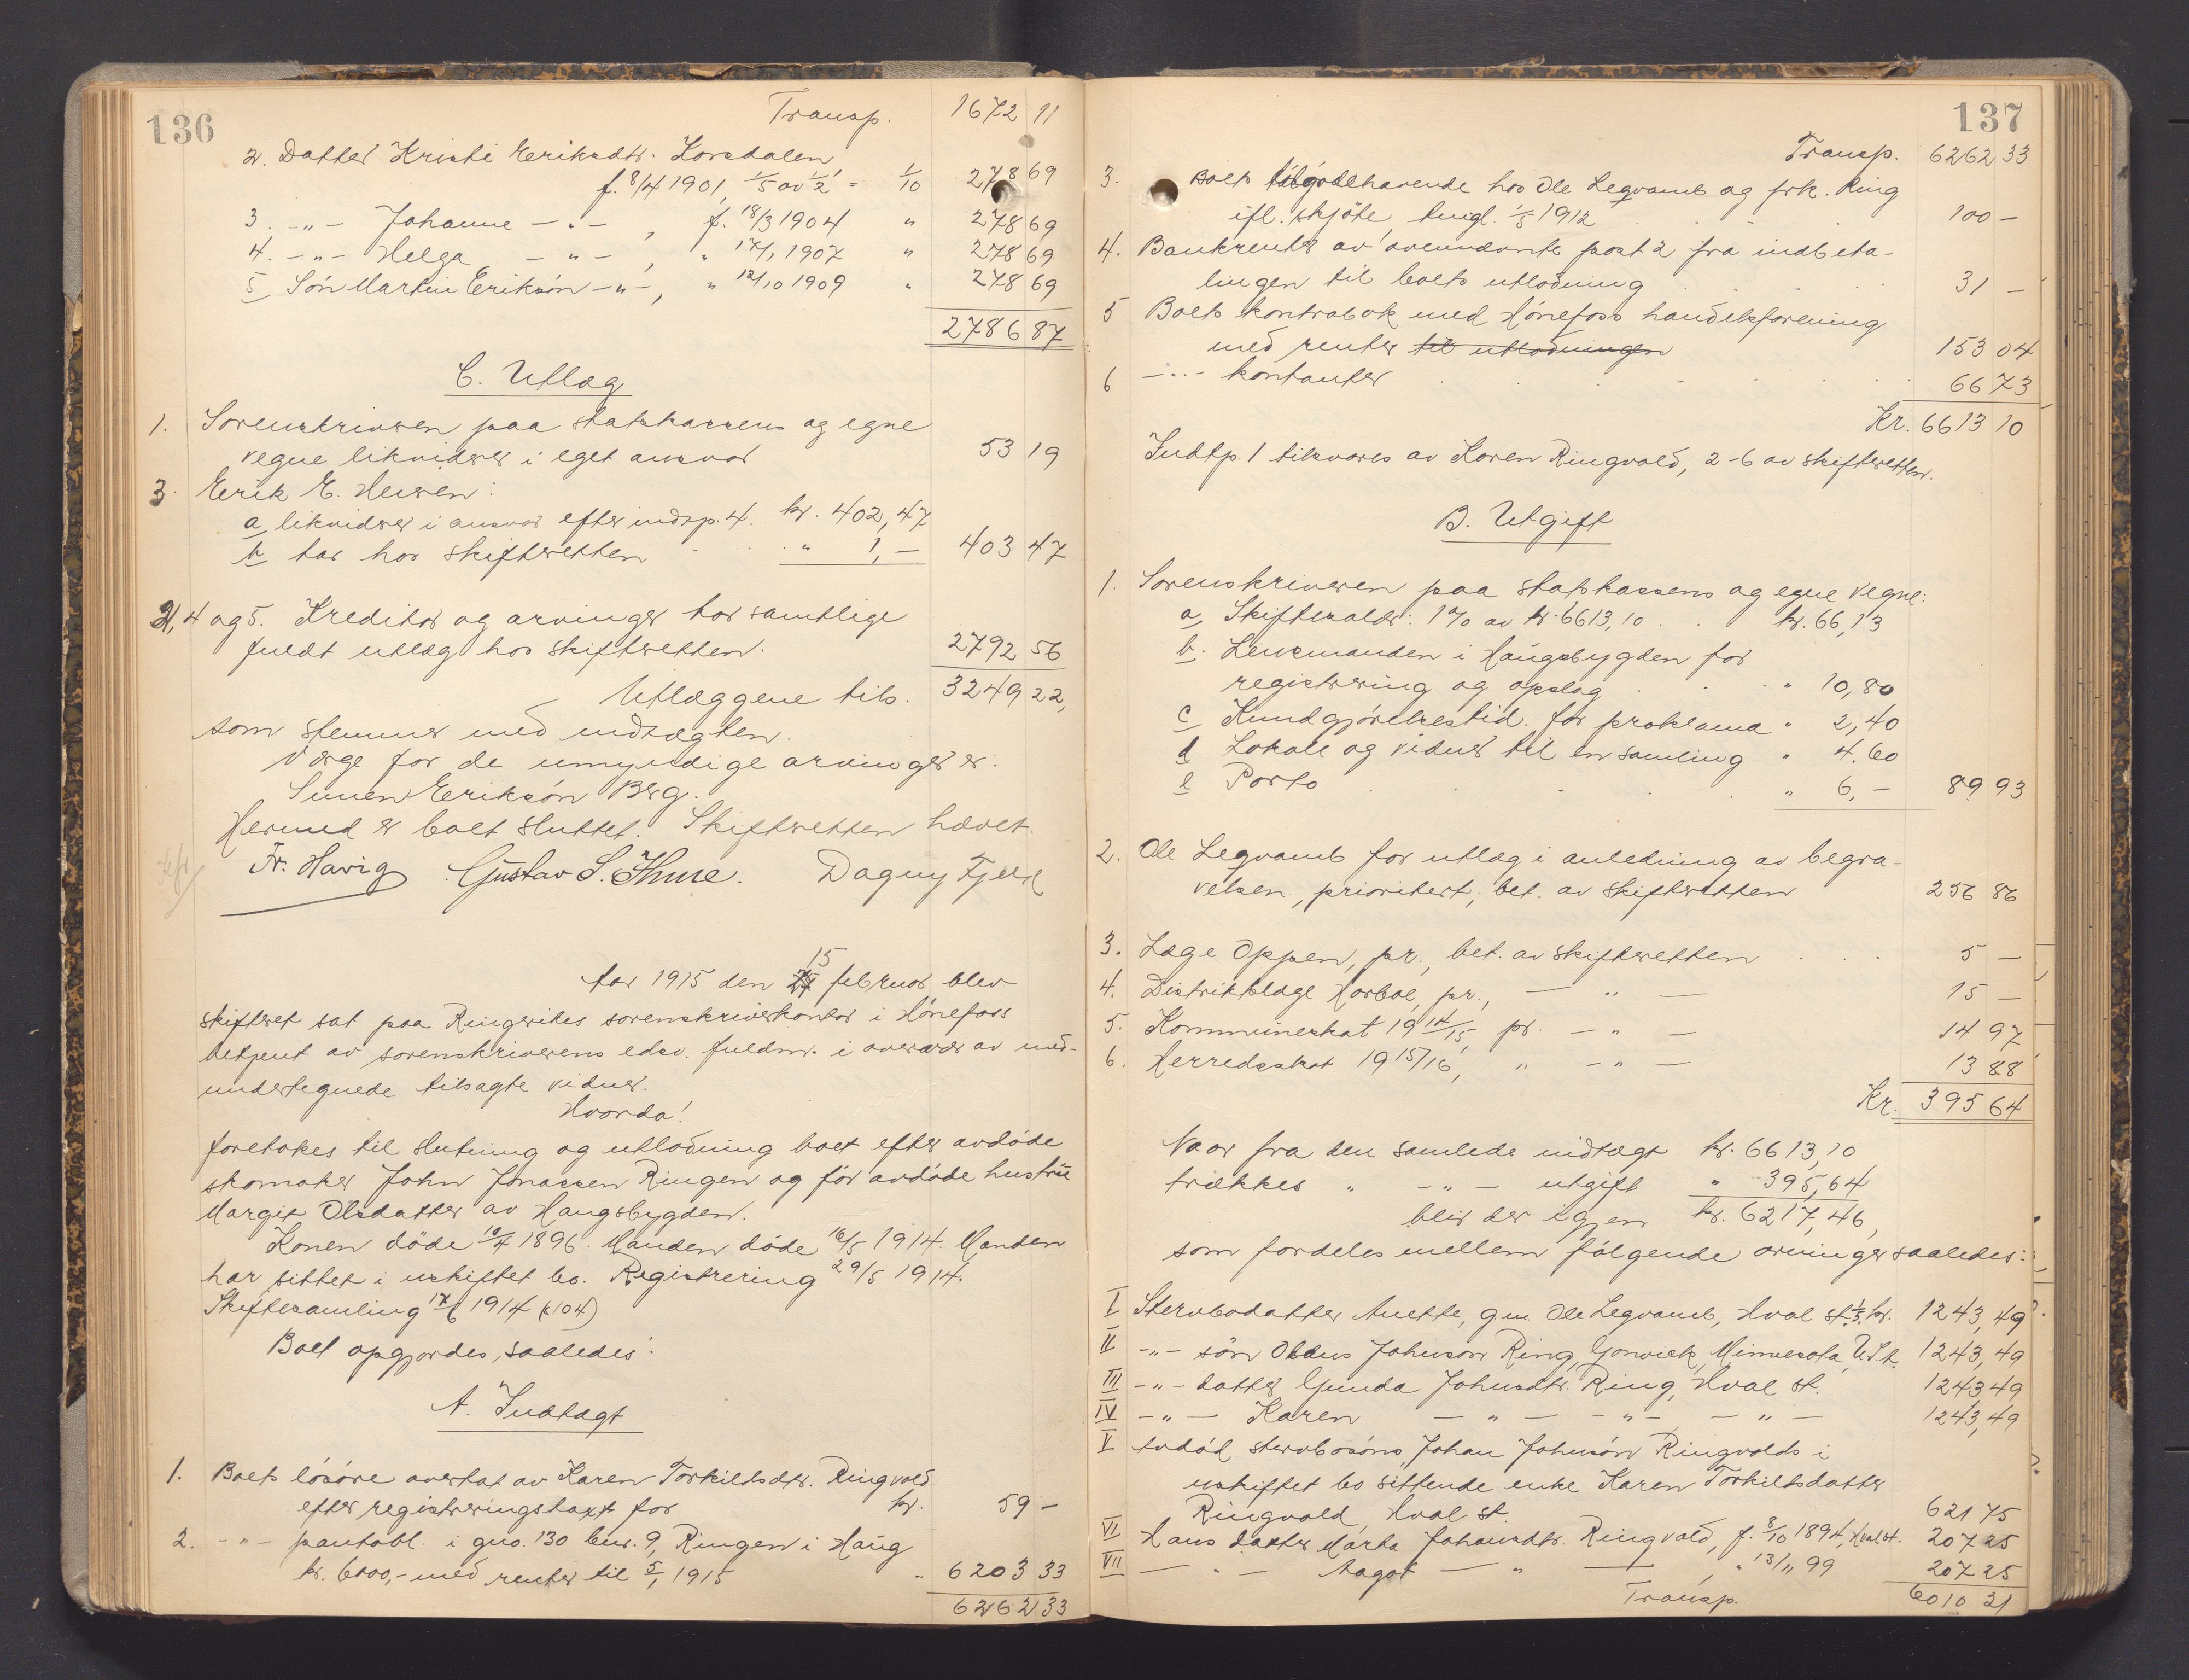 136
Transp. 1672 11
2. Datter Kristi Eriksdtr. Korsdalen
f. 8/4 1901, 1/5 av 1/2 = 1/10 278 69
3. -"- Johanne -"- , f. 18/3 1904 " 278 69
4. -"- Helga -"- , " 17/1 1907 " 278 69
5 Søn Martin Eriksøn -"-, " 12/10 1909 " 278 69
2786 87
C. Utlæg
1. Sorenskriveren paa statskassens og egne
vegne likviderer i eget ansvar 53 19
3. Erik E. Heieren:
a, likviderer i ansvar efter indtp. 4. kr. 402,47
b tar hos skifteretten " 1,- 403 47
2, 4 og 5. Kreditor og arvinger tar samtlige
fuldt utlæg hos skifteretten. 2792 56
Utlæggene tils. 3249 22,
som stemmer med indtægten.
Værge for de umyndige arvinger er:
Simen Eriksøn Berg.
Hermed er boet sluttet. Skifteretten hævet.
Fr. Havig Gustav S. Thune. Dagny Fjeld
Aar 1915 den 15 februar blev
skifteret sat paa Ringerikes sorenskriverkontor i Hønefoss
betjent av sorenskriverens edsv. fuldm. i overvær av med-
undertegnede tilsagte vidner.
Hvorda!
foretokes til slutning og utlodning boet efter avdøde
skomaker John Jonassen Ringen og før avdøde hustru
Margit Olsdatter av Haugsbygden.
Konen døde 10/4 1896. Manden døde 16/5 1914. Manden
har sittet i uskiftet bo. Registrering 29/5 1914.
Skiftesamling 17/6 1914 (s 104)
Boet opgjordes saaledes:
A. Indtægt
1. Boets løsøre overtat av Karen Torkildsdtr. Ringvold
efter registreringstaxt for kr. 59 -
2. -"- pantobl. i gno. 130 bnr. 9, Ringen i Haug
kr. 6000,- med renter til 5/1 1915 " 6203 33
6262 33
137
Transp. 6262 33
3. Boets tilgodehavende hos Ole Legvamb og frk. Ring
ifl. skjøte, tingl. 1/5 1912 100 -
4. Bankrenter av ovennævnte post 2 fra indbeta-
lingen til boets utlodning 31 -
5 Boets kontrabok med Hønefoss handelsforening
med renter til utlodningen 153 04
6 -"- kontanter 66 73
Kr. 6613 10
Indtp. 1 tilsvares av Karen Ringvold, 2-6 av skifteretten.
B. Utgift
1. Sorenskriveren paa statskassens og egne vegne:
a, Skiftesalær: 1% av kr. 6613,10 . . kr. 66,13
b. Lensmanden i Haugsbygden for
registrering og opslag " 10,80
c Kundgjørelsestid. for proklama " 2,40
d Lokale og vidner til en samling " 4.60
e Porto " 6,- 89 93
2. Ole Legvamb for utlæg i anledning av begra-
velsen, prioritert, bet. av skifteretten 256 86
3. Læge Oppen, pr., bet. av skifteretten 5 -
4. Distriktslæge Horboe, pr., - " - 15 -
5. Kommuneskat 1914/15, pr. - " - 14 97
6. Herredsskat 1915/16, " - " - 13 88
Kr. 395 64
Naar fra den samlede indtægt kr. 6613,10
trækkes " -"- utgift " 395,64
blir der igjen kr. 6217,46,
som fordeles mellem følgende arvinger saaledes:
I Stervbodatter Anette, gm. Ole Legvamb, Hval st. 1/5 kr. 1243,49
II -"- søn Olaus Johnsøn Ring, Gonvick, Minnesota, U.S.A. 1243,49
III -"- datter Gunda Johnsdtr. Ring, Hval st. 1243 49
IV -"- Karen - " - - " - - " - 1243,49
V Avdød stervbosøns Johan Johnsøn Ringvolds i
uskiftet bo sittende enke Karen Torkildsdatter
Ringvold, Hval st. 621 75
VI Hans datter Marta Johansdtr. Ringvold, f. 8/10 1894, Hval st. 207 25
VII - " - Aagot - " - , " 13/11 99 207 25
Transp. 6010 21